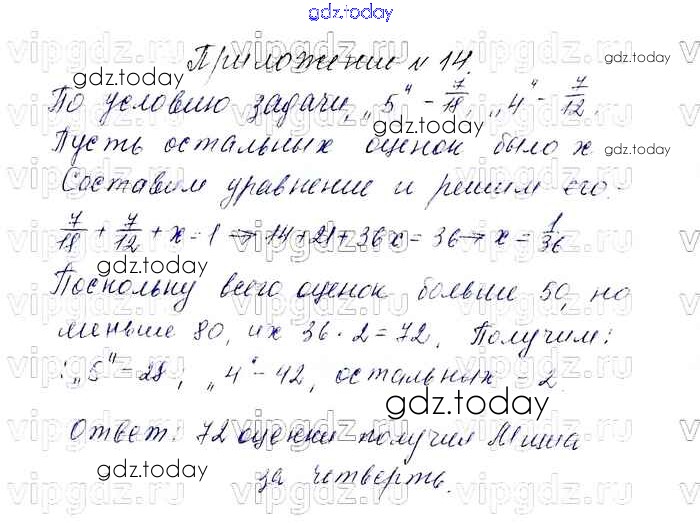 gdz.today
Приложение N 14.
По условию задачи, „5" - 7/18, „4" - 7/12.
Пусть остальных оценок было x
Составим уравнение и решим его:
7/18 + 7/12 + x = 1 → 14+21+36x = 36 → x = 1/36
Поскольку всего оценок больше 50, но
меньше 80, их 36·2=72, Получим:
: „5" - 28; „4" - 42, остальных - 2
Ответ: 72 оценки получил Миша
за четверть.
gdz.today
gdz.today
gdz.today
gdz.today
gdz.today
gdz.today
gdz.today
gdz.today